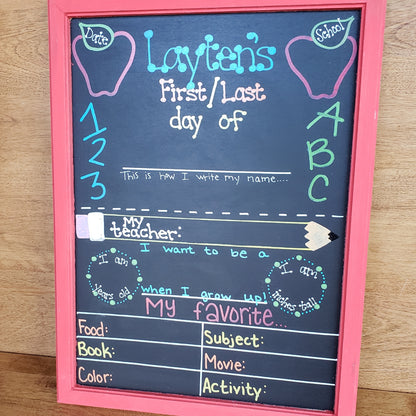 Date
School
Layten's
First/Last
day of
1
2
3
A
B
C
This is how I write my name....
My
teacher:
I want to be a
when I grow up!
I am
years old
I am
inches tall
My favorite...
Food:
Subject:
Book:
Movie:
Color:
Activity: